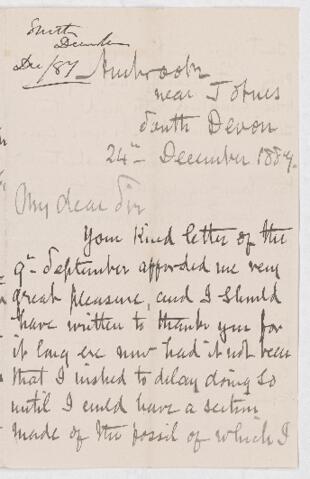 Smith
Dec/87
near Totnes
South Devon
24th December 1887.
My dear Sir
Your kind letter of the
9th September afforded me very
great pleasure, and I should
have written to thank you for
it long ere now had it not been
that I wished to delay doing so
until I could have a section
made of the fossil of which I